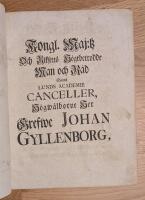 Kongl. Maj:tz
Och Rikens Högtbetrodde
Man och Råd
Samt
LUNDS ACADEMIÆ
CANCELLER,
Högwälborne Her
Grefwe JOHAN
GYLLENBORG,